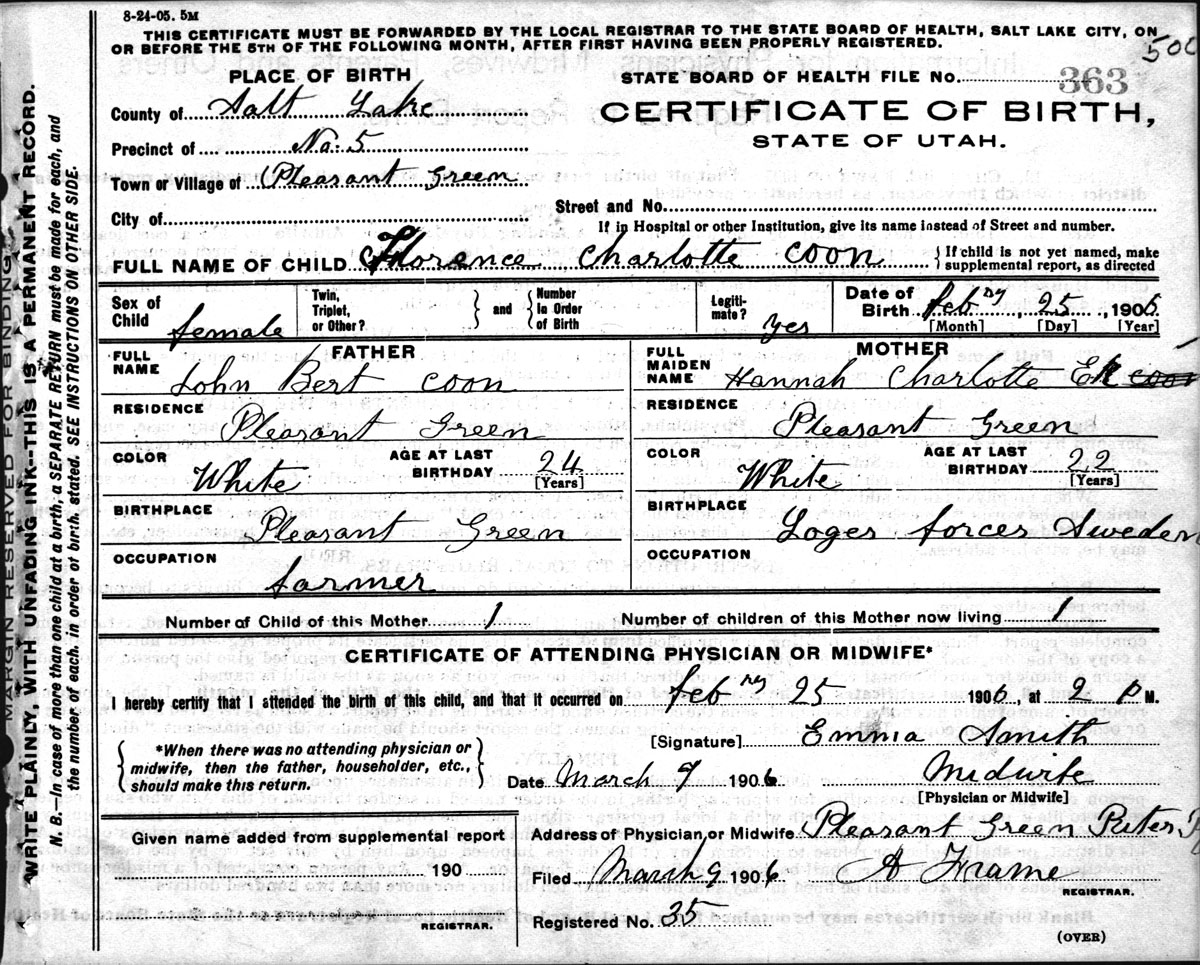 8-24-05. 5M
THIS CERTIFICATE MUST BE FORWARDED BY THE LOCAL REGISTRAR TO THE STATE BOARD OF HEALTH, SALT LAKE CITY, ON
OR BEFORE THE 5TH OF THE FOLLOWING MONTH, AFTER FIRST HAVING BEEN PROPERLY REGISTERED.
500
PLACE OF BIRTH
STATE BOARD OF HEALTH FILE No. 363
County of Salt Lake
CERTIFICATE OF BIRTH,
STATE OF UTAH.
Precinct of No. 5
Town or Village of Pleasant Green
City of
Street and No.
If in Hospital or other Institution, give its name instead of Street and number.
FULL NAME OF CHILD Florence Charlotte Coon
If child is not yet named, make
supplemental report, as directed
Sex of Child female
Twin, Triplet, or Other?
and
Number in Order of Birth
Legiti-mate? yes
Date of Birth Febry, 25, 1906
[Month] [Day] [Year]
FATHER
FULL NAME John Bert Coon
RESIDENCE Pleasant Green
COLOR White
AGE AT LAST BIRTHDAY 24
[Years]
BIRTHPLACE Pleasant Green
OCCUPATION farmer
MOTHER
FULL MAIDEN NAME Hannah Charlotte Ek Coon
RESIDENCE Pleasant Green
COLOR White
AGE AT LAST BIRTHDAY 22
[Years]
BIRTHPLACE Loges forces Sweden
OCCUPATION
Number of Child of this Mother 1
Number of children of this Mother now living 1
CERTIFICATE OF ATTENDING PHYSICIAN OR MIDWIFE*
I hereby certify that I attended the birth of this child, and that it occurred on Febry 25 1906, at 2 P M.
*When there was no attending physician or
midwife, then the father, householder, etc.,
should make this return.
[Signature] Emma Smith
Date March 7 1906
Midwife
[Physician or Midwife]
Given name added from supplemental report
190
REGISTRAR.
Address of Physician or Midwife Pleasant Green
Filed March 9 1906
A Frame
REGISTRAR.
Registered No. 35
(OVER)
MARGIN RESERVED FOR BINDING
WRITE PLAINLY, WITH UNFADING INK--THIS IS A PERMANENT RECORD.
N. B. In case of more than one child at a birth, a SEPARATE RETURN must be made for each, and
the number of each, in order of birth, stated. SEE INSTRUCTIONS ON OTHER SIDE.